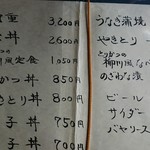 重 3200円
丼 2600円
風定食 1050円
かつ丼 850円
とり丼 800円
子丼 750円
子丼 700円
うなぎ蒲焼
やきとり
とりかつ
柳川風なべ
のざわな漬
ビール
サイダー
バヤリース